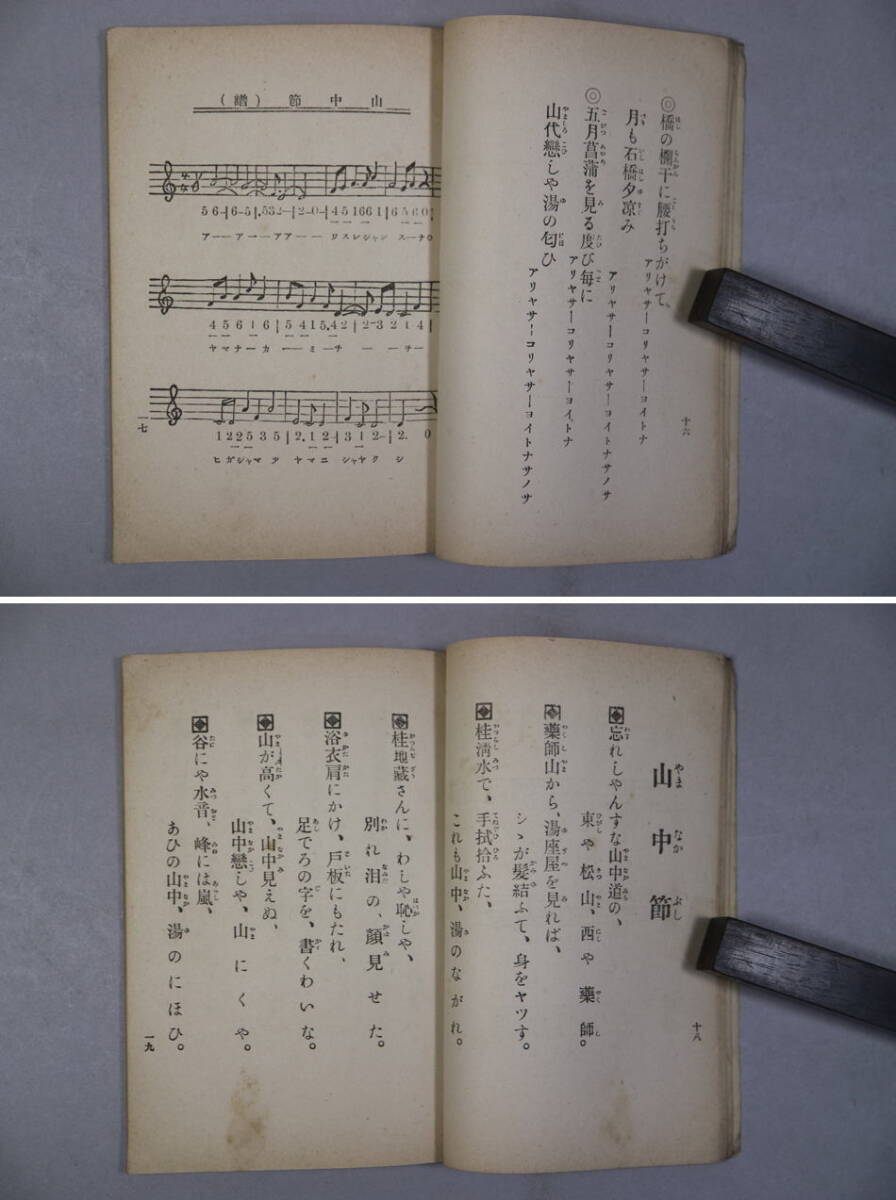 ◎橋の欄干に腰打ちがけて
アリヤサーコリヤサーヨイトナ
月も石橋夕凉み
アリヤサーコリヤサーヨイトナサノサ
◎五月菖蒲を見る度び每に
アリヤサーコリヤサーヨイトナ
山代戀しや湯の匂ひ
アリヤサーコリヤサーヨイトナサノサ
十六
山中節（譜）
4 5 6 1 6 | 5 4 1 5. 4 2 | 2-3 2 1 4 |
ヤマナーカーミーチーーヲー
1 2 2 5 3 5 | 2. 1 2- | 3 1 2- | 2. 0
一七
山中節
忘れしやんすな山中道の、
東や松山、西や藥師。
藥師山から、湯座屋を見れば、
シヽが髪結ふて、身をヤツす。
桂淸水で、手拭拾ふた、
これも山中、湯のながれ。
十八
桂地藏さんに、わしや恥しや、
別れ泪の、顔見せた。
浴衣肩にかけ、戸板にもたれ、
足でろの字を、書くわいな。
山が高くて、山中見えぬ、
山中戀しや、山にくや。
谷にや水音、峰には嵐、
あひの山中、湯のにほひ。
一九